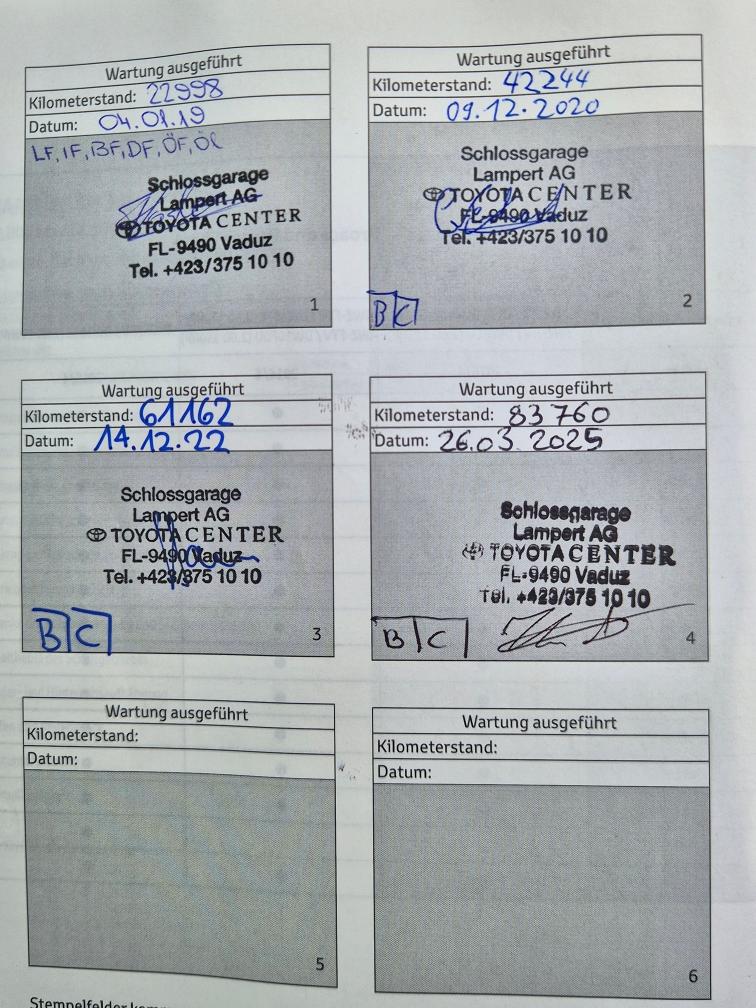 Wartung ausgeführt
Kilometerstand: 22998
Datum: 04.01.19
LF, IF, BF, DF, ÖF, ÖL
Schlossgarage
Lampert AG
TOYOTA CENTER
FL-9490 Vaduz
Tel. +423/375 10 10
1
Wartung ausgeführt
Kilometerstand: 42244
Datum: 09.12.2020
Schlossgarage
Lampert AG
TOYOTA CENTER
FL-9490 Vaduz
Tel. +423/375 10 10
B C
2
Wartung ausgeführt
Kilometerstand: 61162
Datum: 14.12.22
Schlossgarage
Lampert AG
TOYOTA CENTER
FL-9490 Vaduz
Tel. +423/375 10 10
B C
3
Wartung ausgeführt
Kilometerstand: 83760
Datum: 26.03.2025
Schlossgarage
Lampert AG
TOYOTA CENTER
FL-9490 Vaduz
Tel. +423/375 10 10
B C
4
Wartung ausgeführt
Kilometerstand:
Datum:
5
Wartung ausgeführt
Kilometerstand:
Datum:
6
Stempelfelder